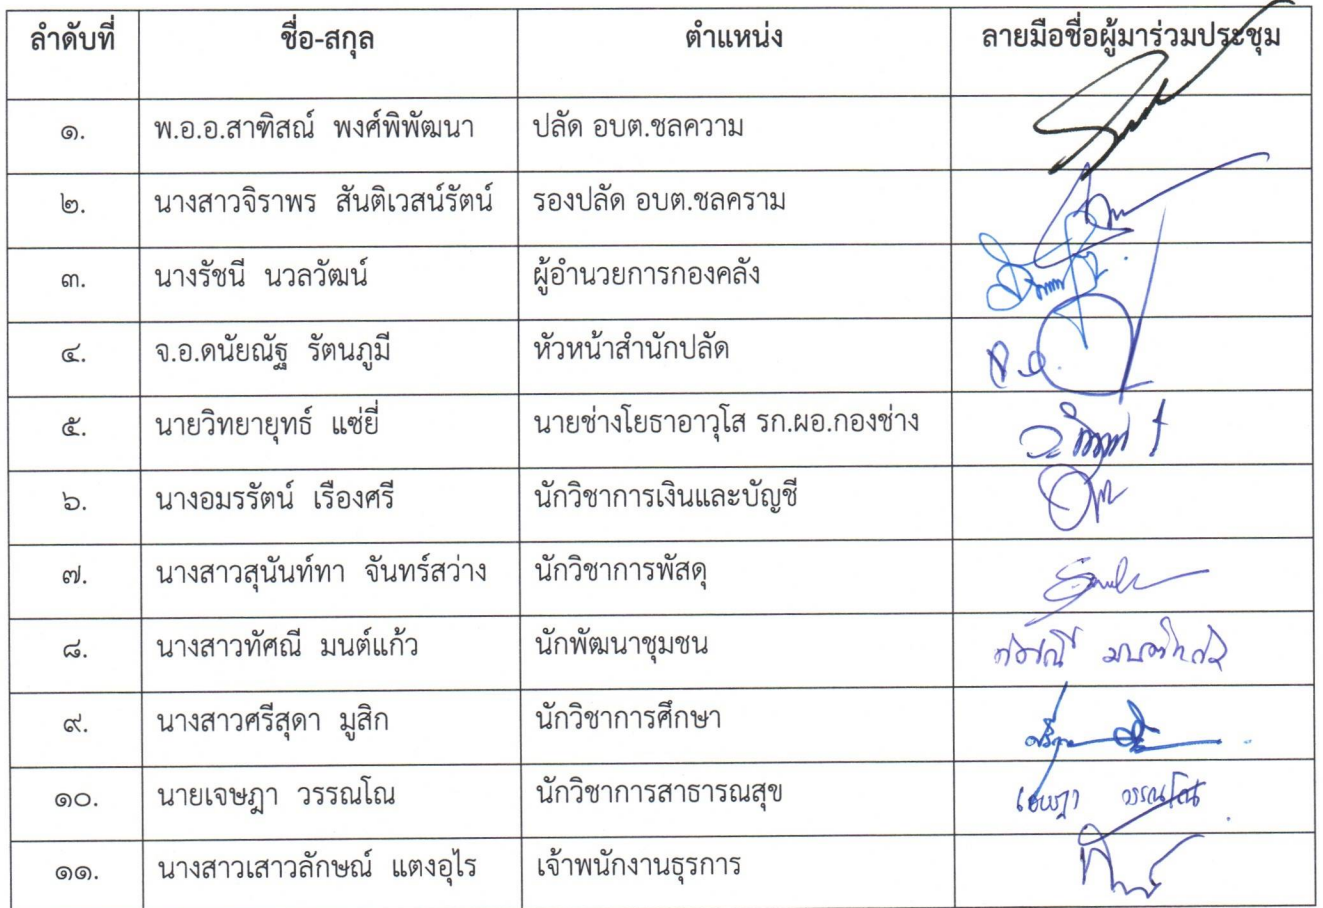 ลำดับที่ ชื่อ-สกุล ตำแหน่ง ลายมือชื่อผู้มาร่วมประชุม
๑. พ.อ.อ.สาฑิสณ์ พงศ์พิพัฒนา ปลัด อบต.ชลความ
๒. นางสาวจิราพร สันติเวสน์รัตน์ รองปลัด อบต.ชลคราม
๓. นางรัชนี นวลวัฒน์ ผู้อำนวยการกองคลัง
๔. จ.อ.ดนัยณัฐ รัตนภูมี หัวหน้าสำนักปลัด
๕. นายวิทยายุทธ์ แซ่ยี่ นายช่างโยธาอาวุโส รก.ผอ.กองช่าง
๖. นางอมรรัตน์ เรืองศรี นักวิชาการเงินและบัญชี
๗. นางสาวสุนันท์ทา จันทร์สว่าง นักวิชาการพัสดุ
๘. นางสาวทัศณี มนต์แก้ว นักพัฒนาชุมชน ทัศณี มนต์แก้ว
๙. นางสาวศรีสุดา มูสิก นักวิชาการศึกษา
๑๐. นายเจษฎา วรรณโณ นักวิชาการสาธารณสุข เจษฎา วรรณโณ
๑๑. นางสาวเสาวลักษณ์ แตงอุไร เจ้าพนักงานธุรการ